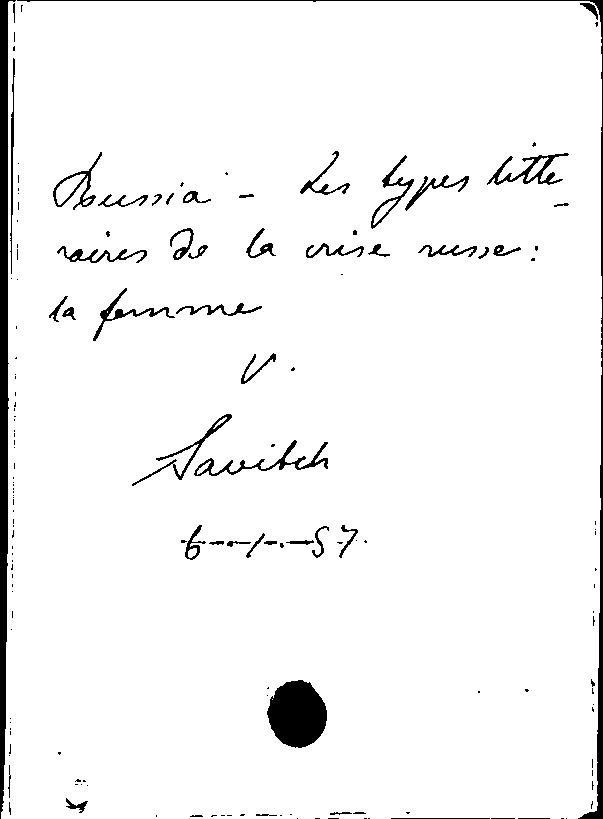 Russia - Les types litte-
raires de la crise russe:
la femme
V.
Savitch
6-1-57.